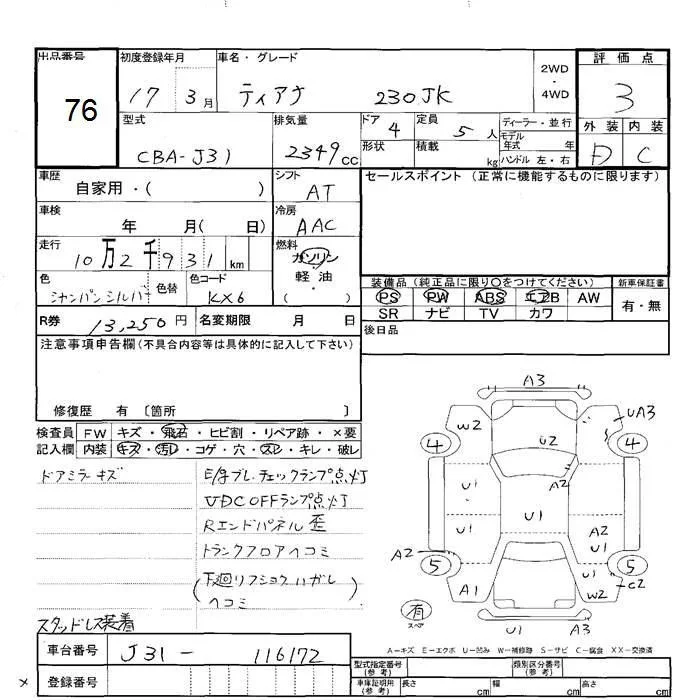 出品番号
76
初度登録年月
17 3月
車名・グレード
ティアナ 230JK
2WD
・
4WD
評価点
3
外装 内装
D C
型式
CBA-J31
排気量
2349cc
ドア 4
形状
定員 5人
積載 kg
ディーラー・並行
モデル年式 年
ハンドル 左・右
車歴
自家用・( )
シフト
AT
セールスポイント (正常に機能するものに限ります)
車検
年 月( 日)
冷房
AAC
走行
10万2千931km
燃料
ガソリン
・
軽油
・
( )
色
シャンパンシルバー
色替
色コード
KX6
装備品(純正品に限り〇をつけてください)
新車保証書
PS PW ABS エアB AW
有・無
SR ナビ TV カワ
R券 13,250円
名変期限 月 日
後日品
注意事項申告欄(不具合内容等は具体的に記入して下さい)
修復歴 有 〔箇所 〕
検査員
記入欄
FW キズ・飛石・ヒビ割・リペア跡・×要
内装 キズ・汚レ・コゲ・穴・スレ・キレ・破レ
ドアミラーキズ
E/gブレ、チェックランプ点灯
VDC OFFランプ点灯
Rエンドパネル歪
トランクフロアヘコミ
(下廻リフショクハガレ
ヘコミ)
スタッドレス装着
A3
W2
UA3
4
U2
4
A2
U1
U1
A2
U1
A2
5
5
A1
W2
C2
有
スペア
U1
A3
A-キズ E-エクボ U-凹み W-補修跡 S-サビ C-腐食 XX-交換済
車台番号
J31- 116172
×
登録番号
型式指定番号
(参考)
類別区分番号
(参考)
車庫証明用
(参考)
長さ cm
幅 cm
高さ cm